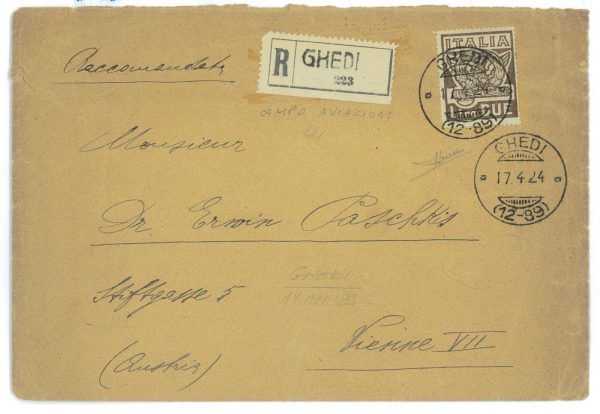 Raccomandata
R GHEDI
223
ITALIA
LIRE DUE
GHEDI
17.4.24
(12-89)
GHEDI
17.4.24
(12-89)
CAMPO AVIAZIONE
Monsieur
Dr. Erwin Paschkis
GHEDI
Stiftgasse 5
Vienne VII
(Austria)